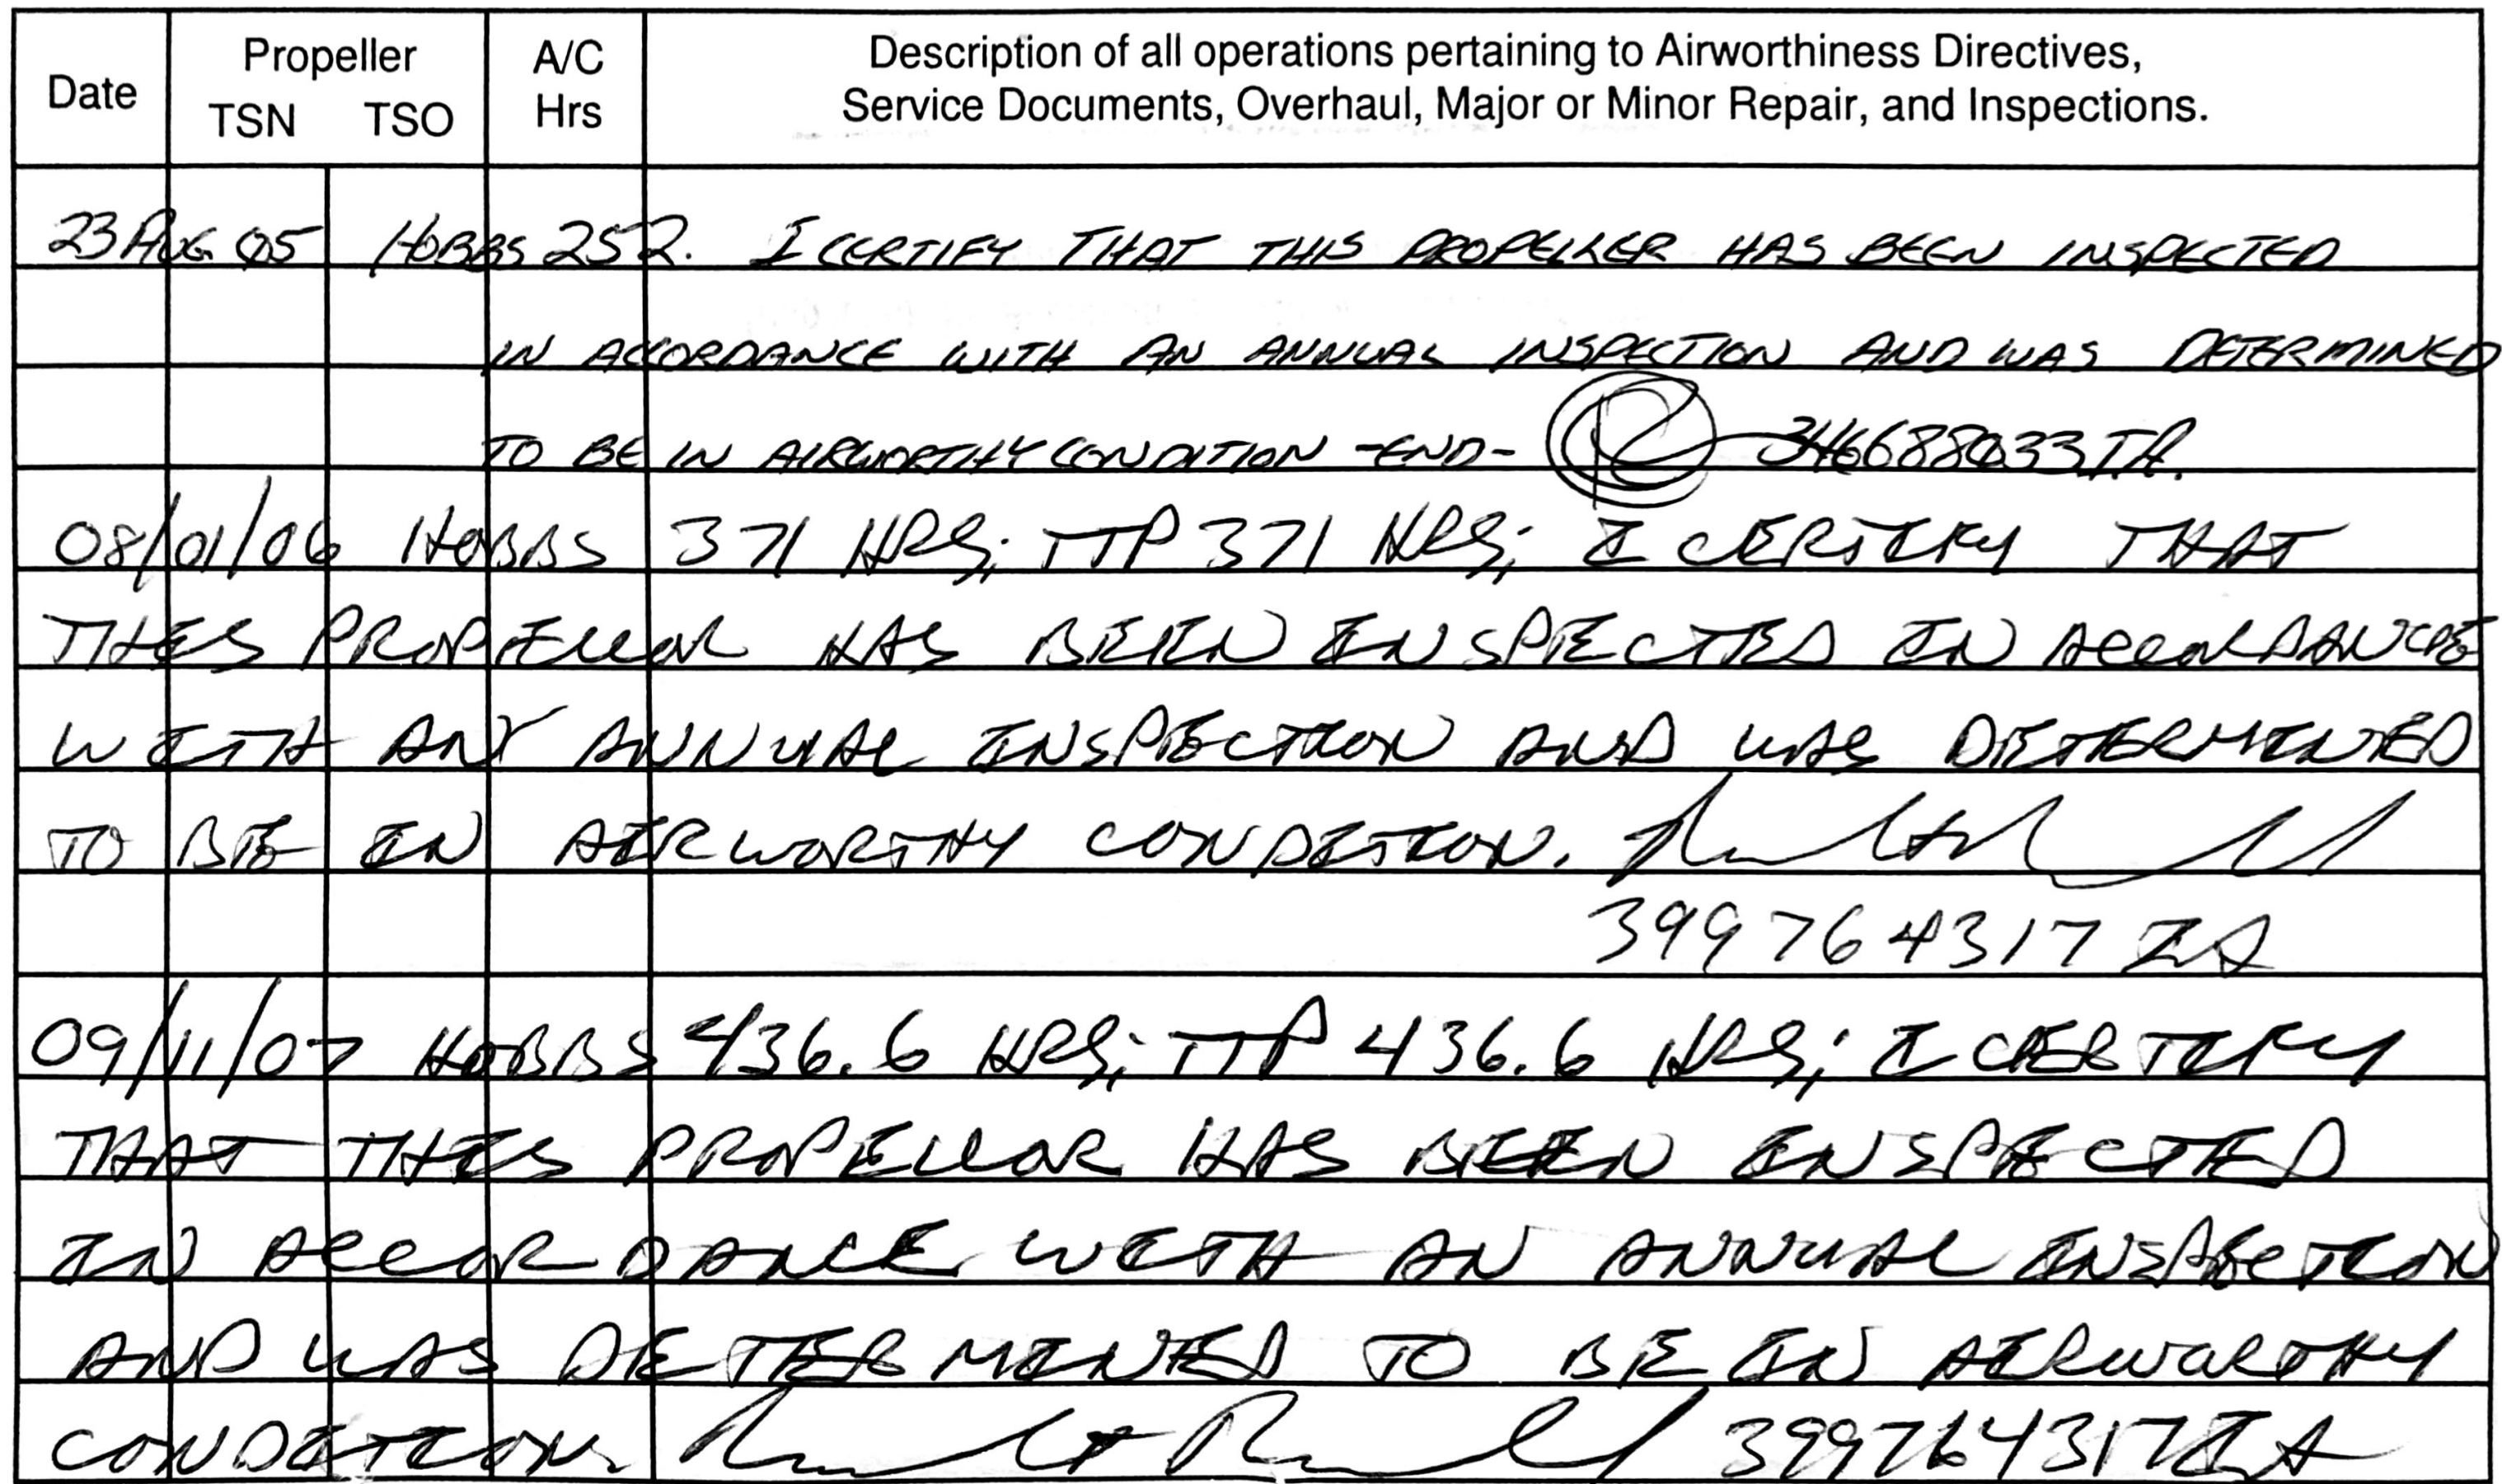 Date Propeller TSN TSO A/C Hrs Description of all operations pertaining to Airworthiness Directives,
Service Documents, Overhaul, Major or Minor Repair, and Inspections.
23 AUG 05 HOBBS 252. I CERTIFY THAT THIS PROPELLER HAS BEEN INSPECTED
IN ACCORDANCE WITH AN ANNUAL INSPECTION AND WAS DETERMINED
TO BE IN AIRWORTHY CONDITION -END- 346688033 IA.
08/01/06 HOBBS 371 HRS; TTP 371 HRS; I CERTIFY THAT
THIS PROPELLOR HAS BEEN INSPECTED IN ACCORDANCE
WITH ANY ANNUAL INSPECTION AND WAS DETERMINED
TO BE IN AIRWORTHY CONDITION.
399764317 IA
09/11/07 HOBBS 436.6 HRS; TTP 436.6 HRS; I CERTIFY
THAT THIS PROPELLOR HAS BEEN INSPECTED
IN ACCORDANCE WITH AN ANNUAL INSPECTION
AND WAS DETERMINED TO BE IN AIRWORTHY
CONDITION. 399764317 IA